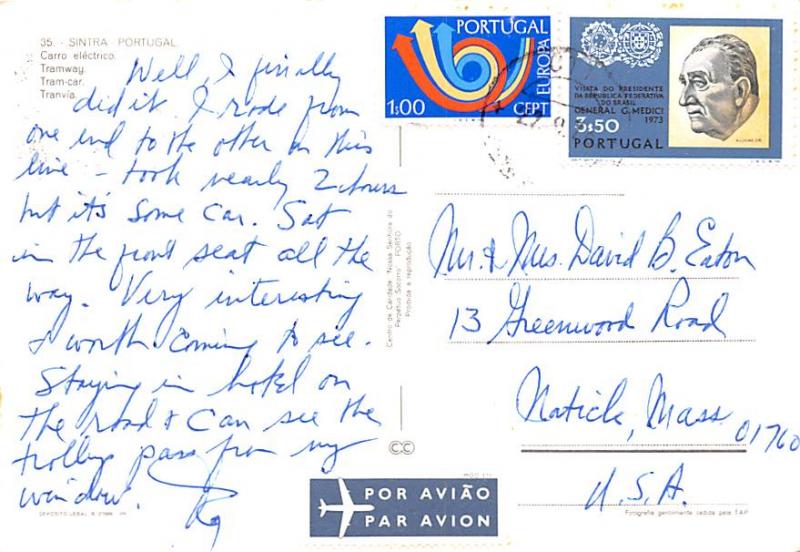 35. - SINTRA - PORTUGAL.
Carro eléctrico.
Tramway.
Tram-car.
Tranvía.
Well, I finally
did it. I rode from
one end to the other on this
line - took nearly 2 hours
but it's some car. Sat
in the front seat all the
way. Very interesting
& worth coming to see.
Staying in hotel on
the road & can see the
trolleys pass from my
window.
PORTUGAL
EUROPA
1:00
CEPT
VISITA DO PRESIDENTE
DA REPÚBLICA FEDERATIVA
DO BRASIL
GENERAL G. MEDICI
1973
3$50
PORTUGAL
Centro de Caridade "Nossa Senhora do
Perpétuo Socorro" PORTO
Proibida a reprodução
Mr. & Mrs. David B. Eaton
13 Greenwood Road
Natick, Mass
01760
U.S.A.
CC
POR AVIÃO
PAR AVION
DEPÓSITO LEGAL
Fotografia gentilmente cedida pela TAP